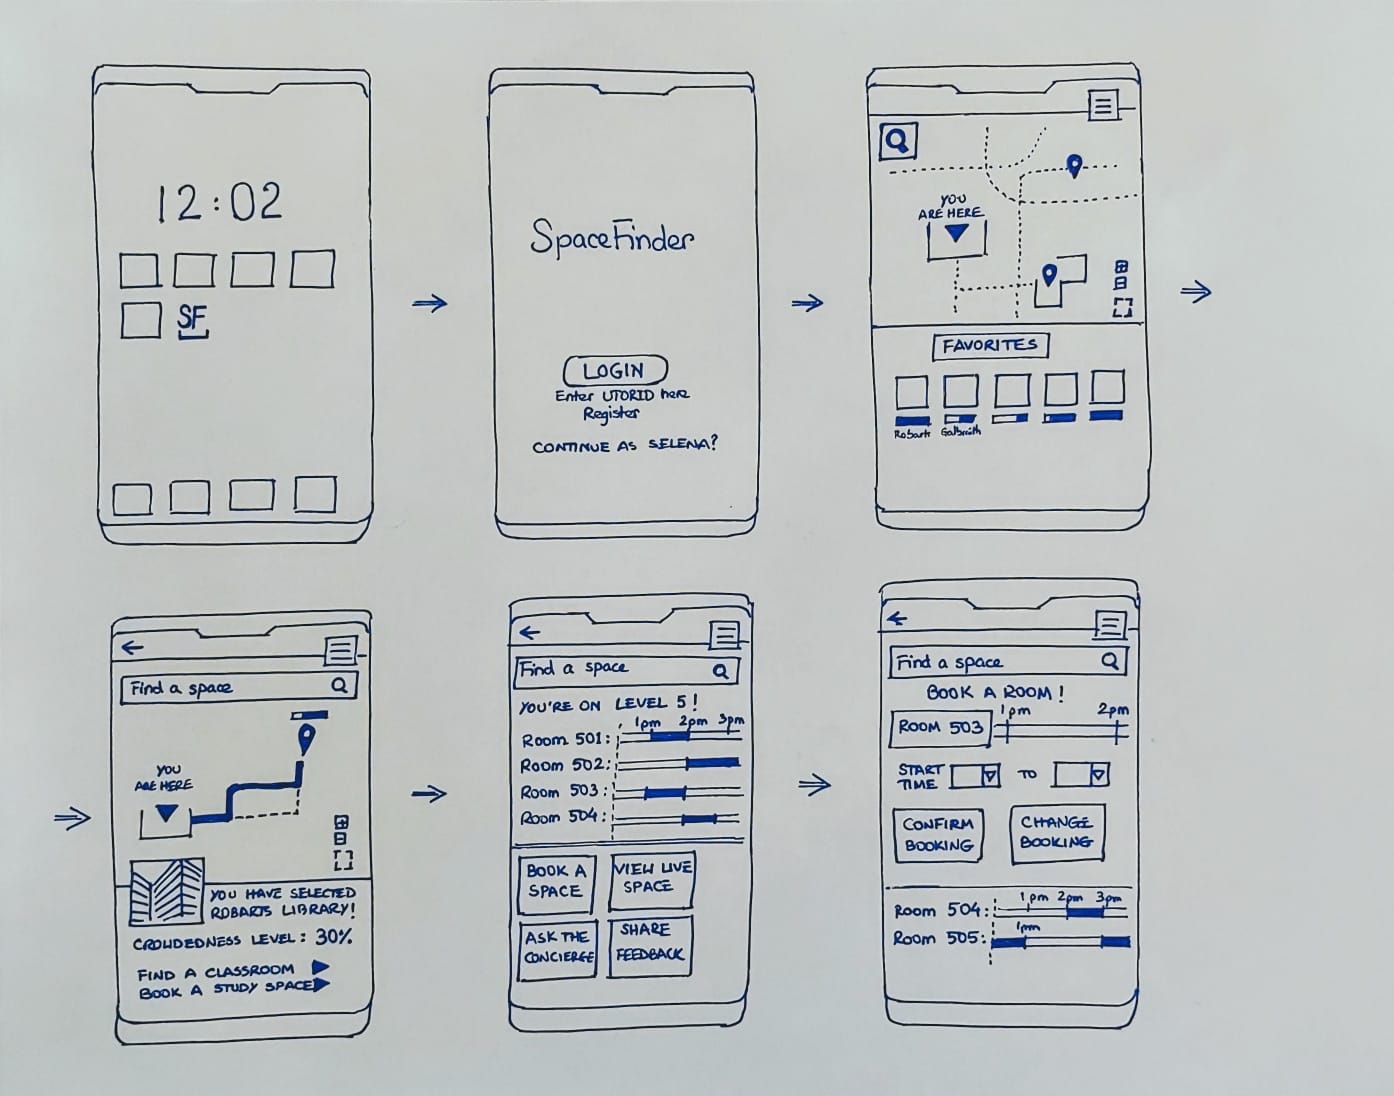 12:02
SF
SpaceFinder
LOGIN
Enter UTORID here
Register
CONTINUE AS SELENA?
YOU
ARE HERE
FAVORITES
Robarts Galbraith
Find a space
YOU
ARE HERE
YOU HAVE SELECTED
ROBARTS LIBRARY!
CROWDEDNESS LEVEL: 30%
FIND A CLASSROOM
BOOK A STUDY SPACE
Find a space
YOU'RE ON LEVEL 5!
1pm 2pm 3pm
Room 501:
Room 502:
Room 503:
Room 504:
BOOK A
SPACE
VIEW LIVE
SPACE
ASK THE
CONCIERGE
SHARE
FEEDBACK
Find a space
BOOK A ROOM!
1pm 2pm
ROOM 503
START
TIME
TO
CONFIRM
BOOKING
CHANGE
BOOKING
1pm 2pm 3pm
Room 504:
1pm
Room 505: